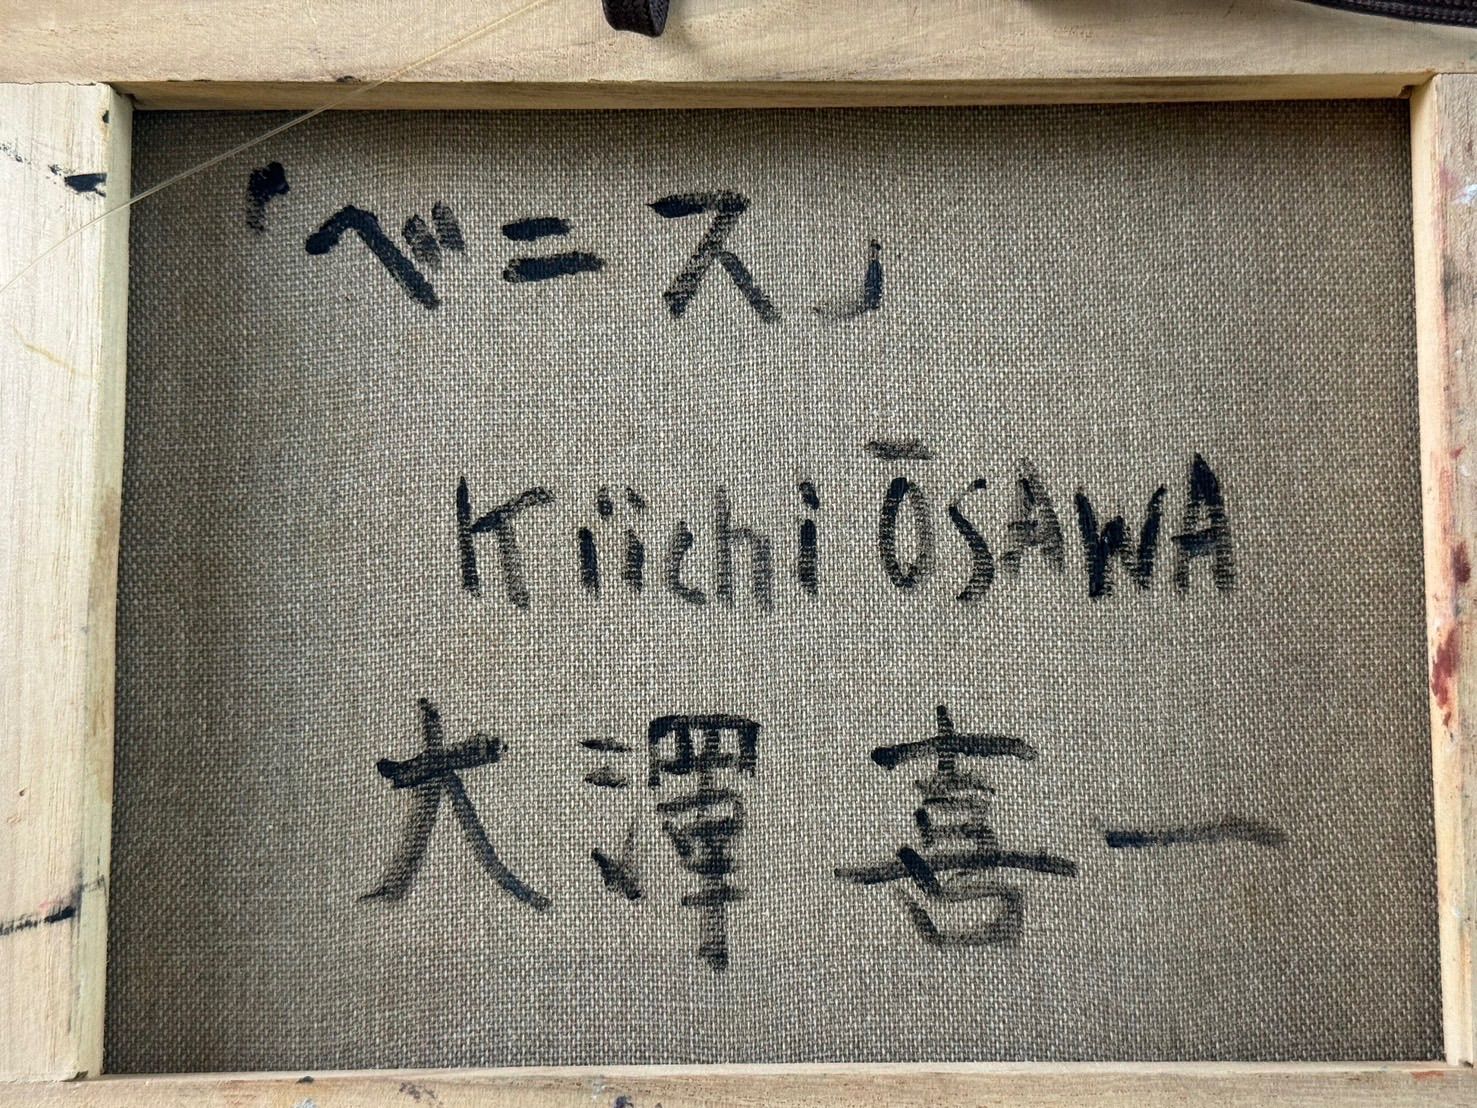 「ベニス」
Kiichi ŌSAWA
大澤喜一